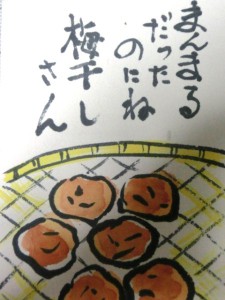 まんまる
だった
のにね
梅干し
さん